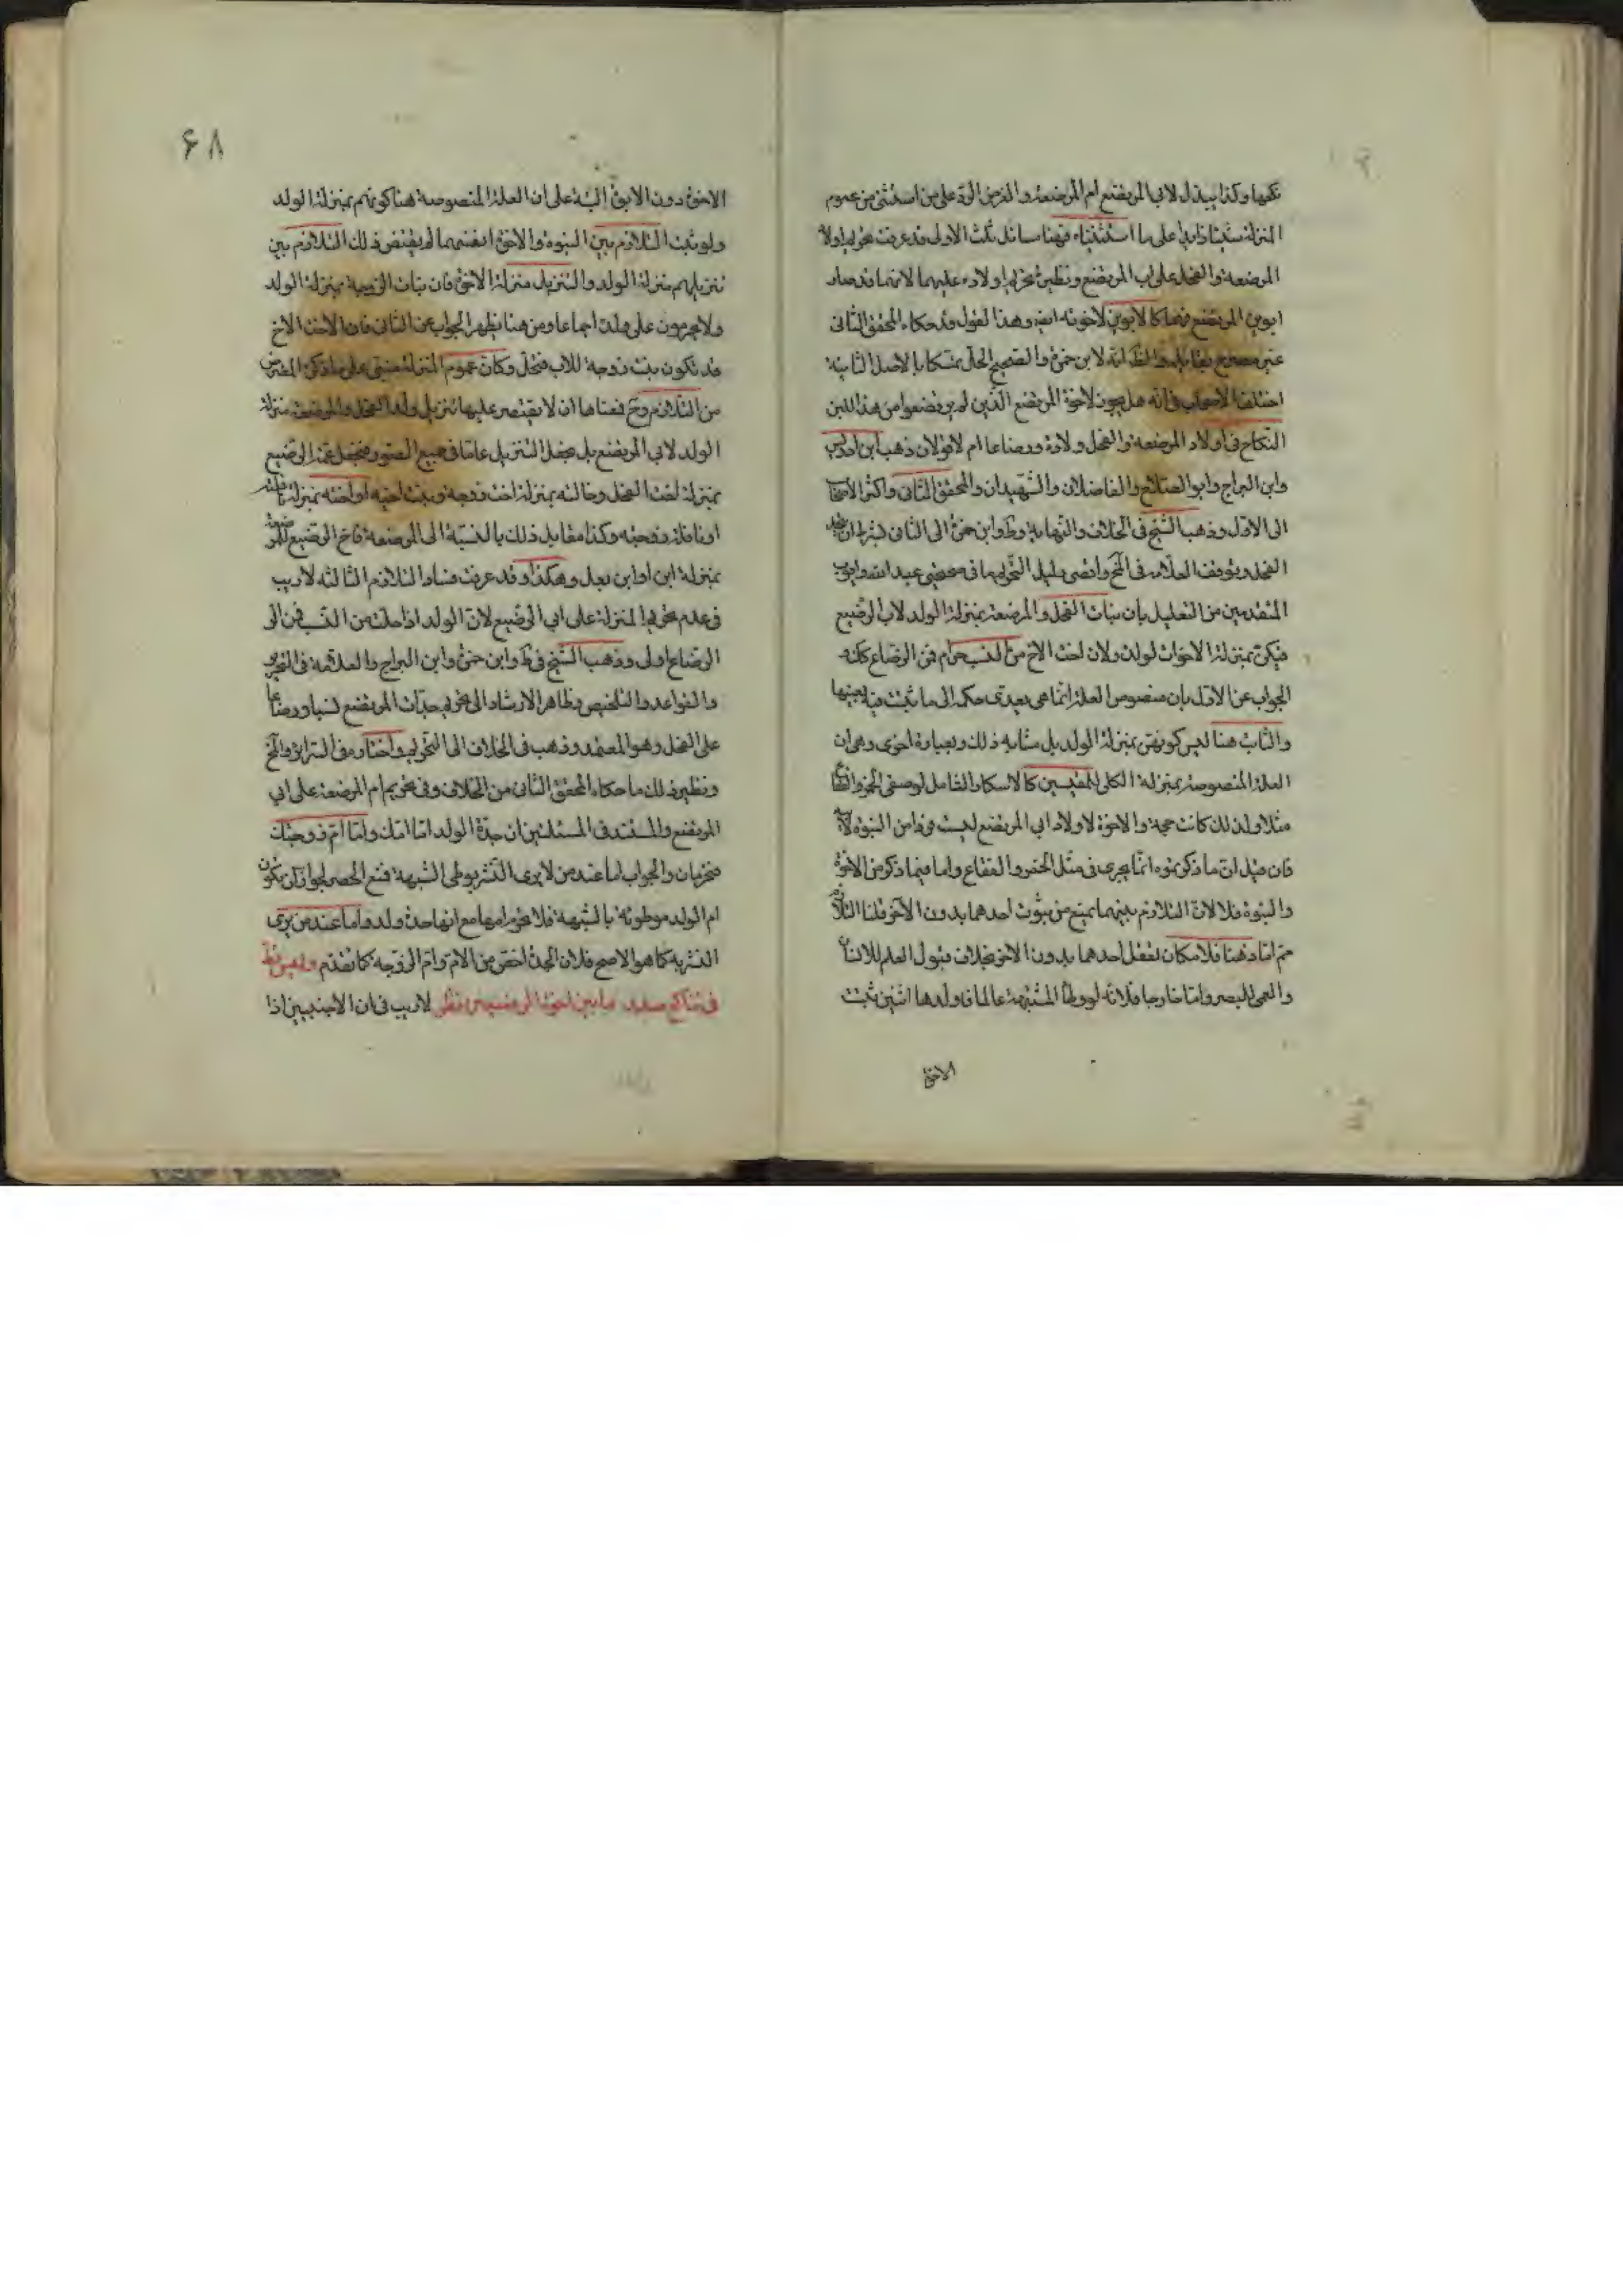 نكحها وكذا يبذل لابي المرتضع ام المرضعة والغرض الرد على من استثنى من عموم
المنزلة شيئا زايدا على ما استثنيناه فهنا مسائل ثلث الاولى قد عرفت تحريم اولاد
المرضعة والفحل على اب المرتضع ونظيره تحريم اولاده عليهما لانهما قد صارا
ابوين المرتضع فهما كالابوين لاخوته ايضا وهذا القول قد حكاه المحقق الثاني
غير مصرح بقايله لابن حمزة والصحيح الحل تمسكا بالاصل الثانية
اختلف الاصحاب في انه هل يجوز لاخوة المرتضع الذين لم يرتضعوا من هذا اللبن
النكاح في اولاد المرضعة والفحل ولادة ورضاعا ام لا قولان ذهب ابن ادريس
وابن البراج وابو الصلاح والفاضلان والشهيدان والمحقق الثاني واكثر الاصحاب
الى الاول وذهب الشيخ في الخلاف والنهاية وط وابن حمزة الى الثاني بشرط اتحاد
الفحل وتوقف العلامة في لف واقصى دليل التحريم ما في صحيحتي عبد الله وايوب
المتقدمين من التعليل بان بنات الفحل والمرضعة بمنزلة الولد لاب الرضيع
فيكن بمنزلة الاخوات لولده ولان اخت الاخ من النسب حرام فمن الرضاع كذلك
الجواب عن الاول بان منصوص العلة انما هي يعدى حكمه الى ما ثبت فيه بعينها
والثابت هنا ليس كونهن بمنزلة الولد بل مشابه ذلك وبعبارة اخرى وهي ان
العلة المنصوصة بمنزلة الكلي للمقيسين كالاسكار الشامل لوصفي الخمر والفقاع
مثلا ولذلك كانت حجة والاخوة لاولاد ابي المرتضع ليست فردا من البنوة لابيه
فان قيل ان ما ذكرتموه انما يجري في مثل الخمر والفقاع واما فيما ذكر من الاخوة
والبنوة فلا لان التلازم بينهما يمنع من ثبوت احدهما بدون الاخر قلنا التلازم
مم اما ذهنا فلامكان تعقل احدهما بدون الاخر بخلاف قبول العلم للانسان
والعمى للبصر واما خارجا فلانه لو وطئ المشتبهة عالما فاولدها اثنين ثبت
الاخوة
۶۸
الاخوة دون الابوة البتة على ان العلة المنصوصة هنا كونهم بمنزلة الولد
ولو ثبت التلازم بين البنوة والاخوة انفسهما لم يقتض ذلك التلازم بين
تنزيلهم منزلة الولد والتنزيل منزلة الاخوة فان بنات الزوجة بمنزلة الولد
ولا يحرمون على ولده اجماعا ومن هنا يظهر الجواب عن الثاني فان الاخت الاخ
قد تكون بنت زوجة للاب فتحل وكان عموم المنزلة مبتنى على ما ذكره المعترض
من التلازم وح فمقتضاها ان لا يقتصر عليها تنزيل ولد الفحل والمرضعة منزلة
الولد لابي المرتضع بل يجعل التنزيل عاما في جميع الصور فتجعل عمة الرضيع
بمنزلة اخت الفحل وخالته بمنزلة اخت زوجه وبنت اخيه او اخته بمنزلة نافلته
او نافلة زوجته وكذا مقابل ذلك بالنسبة الى المرضعة فاخ الرضيع للمرضعة
بمنزلة ابن او ابن بعل وهكذا وقد عرفت فساد التلازم الثالثة لا ريب
في عدم تحريم المنزلة على ابي الرضيع لان الولد اذا حلت من النسب فمن
الرضاع اولى وذهب الشيخ في ط وابن حمزة وابن البراج والعلامة في التحرير
والقواعد والتلخيص وظاهر الارشاد الى تحريم جدات المرتضع نسبا ورضاعا
على الفحل وهو المعتمد وذهب في الخلاف الى التحريم واختاره في السرائر ولف
ونظير ذلك ما حكاه المحقق الثاني من الخلاف وفي تحريم ام المرضعة على ابي
المرتضع والمستند في المسئلتين ان جدة الولد اما امك واما ام زوجتك
محرمان والجواب اما عند من لا يرى النشر بوطي الشبهة فنمنع الحصر لجواز ان يكون
ام الولد موطوئة بالشبهة فلا تحرم امها مع انها جدة ولد واما عند من يرى
النشر به كما هو الاصح فلان الجدة اخص من الام وام الزوجة كما تقدم
في تناكح ما بين اخوة الرضيعين نظر لا ريب في ان الاجنبيين اذا